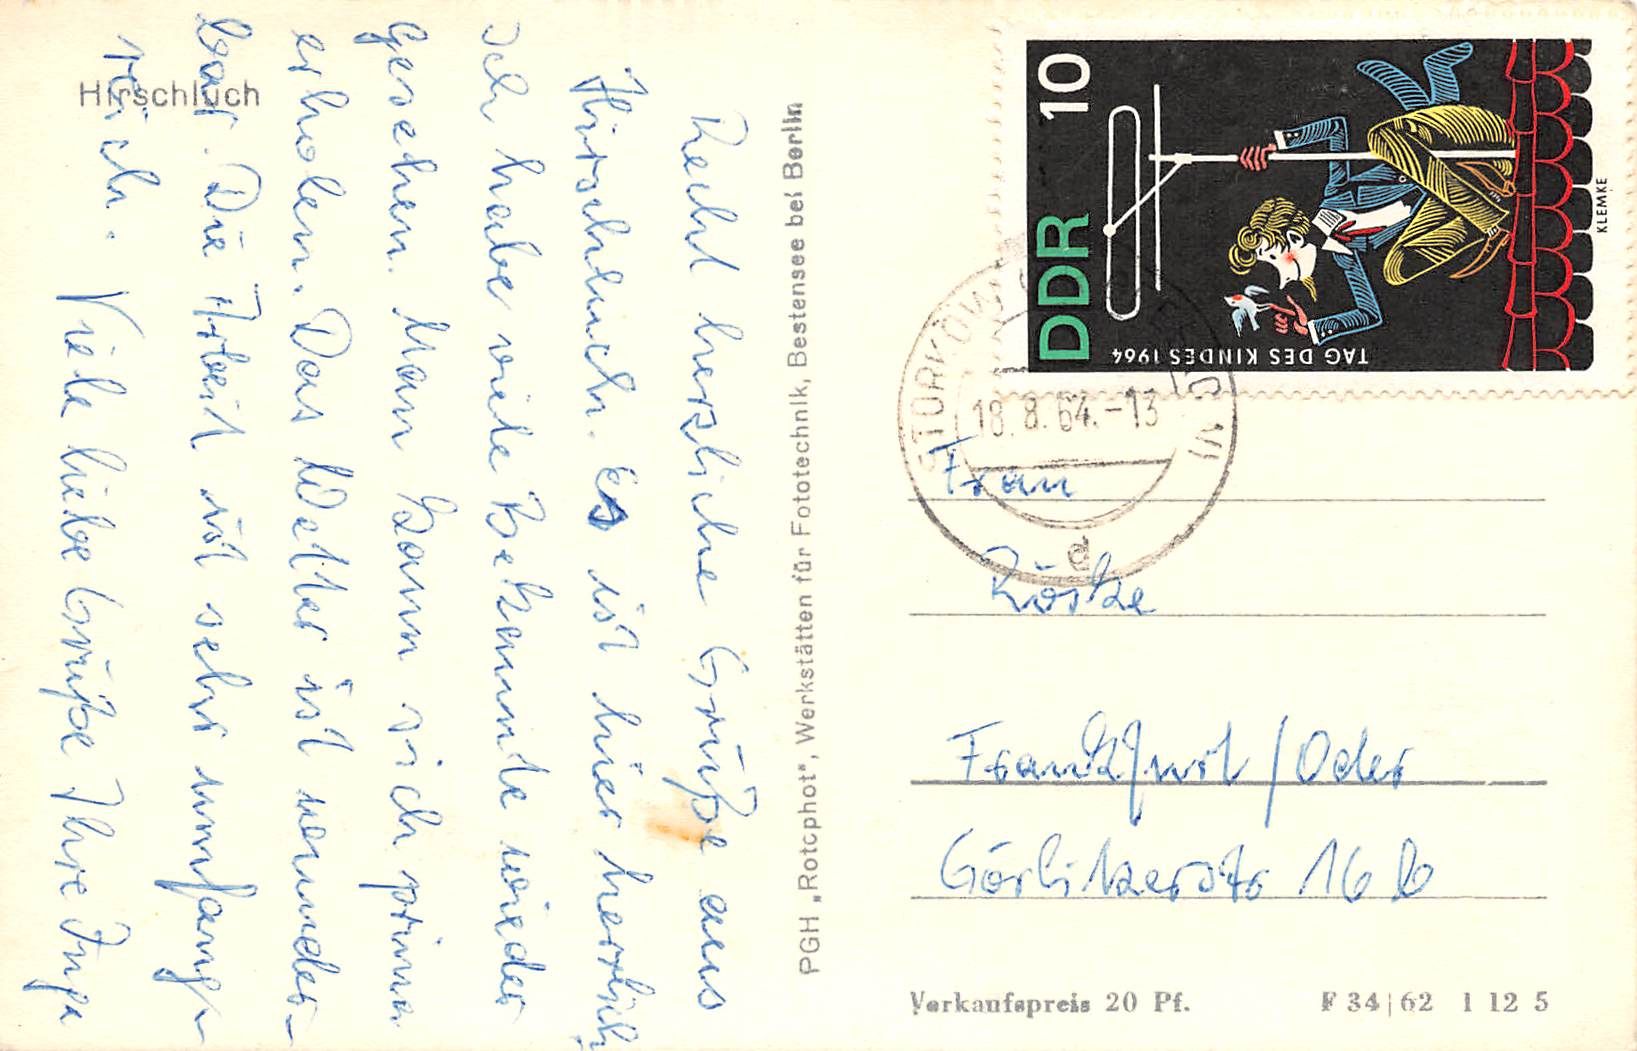 Hirschluch
Recht herzliche Grüße aus
Hirschluch. Es ist hier herrlich
Ich habe viele Bekannte wieder
gesehen. Man kann sich prima
erholen. Das Wetter ist wunder-
bar. Die Arbeit ist sehr umfang-
reich.
Viele liebe Grüße Ihre Inge
PGH „Rotophot“, Werkstätten für Fototechnik, Bestensee bei Berlin
DDR 10
TAG DES KINDES 1964
KLEMKE
STORKOW
18.8.64.-13
e
Frau
Röske
Frankfurt/Oder
Görlitzerstr 16 b
Verkaufspreis 20 Pf.
F 34|62 1 12 5